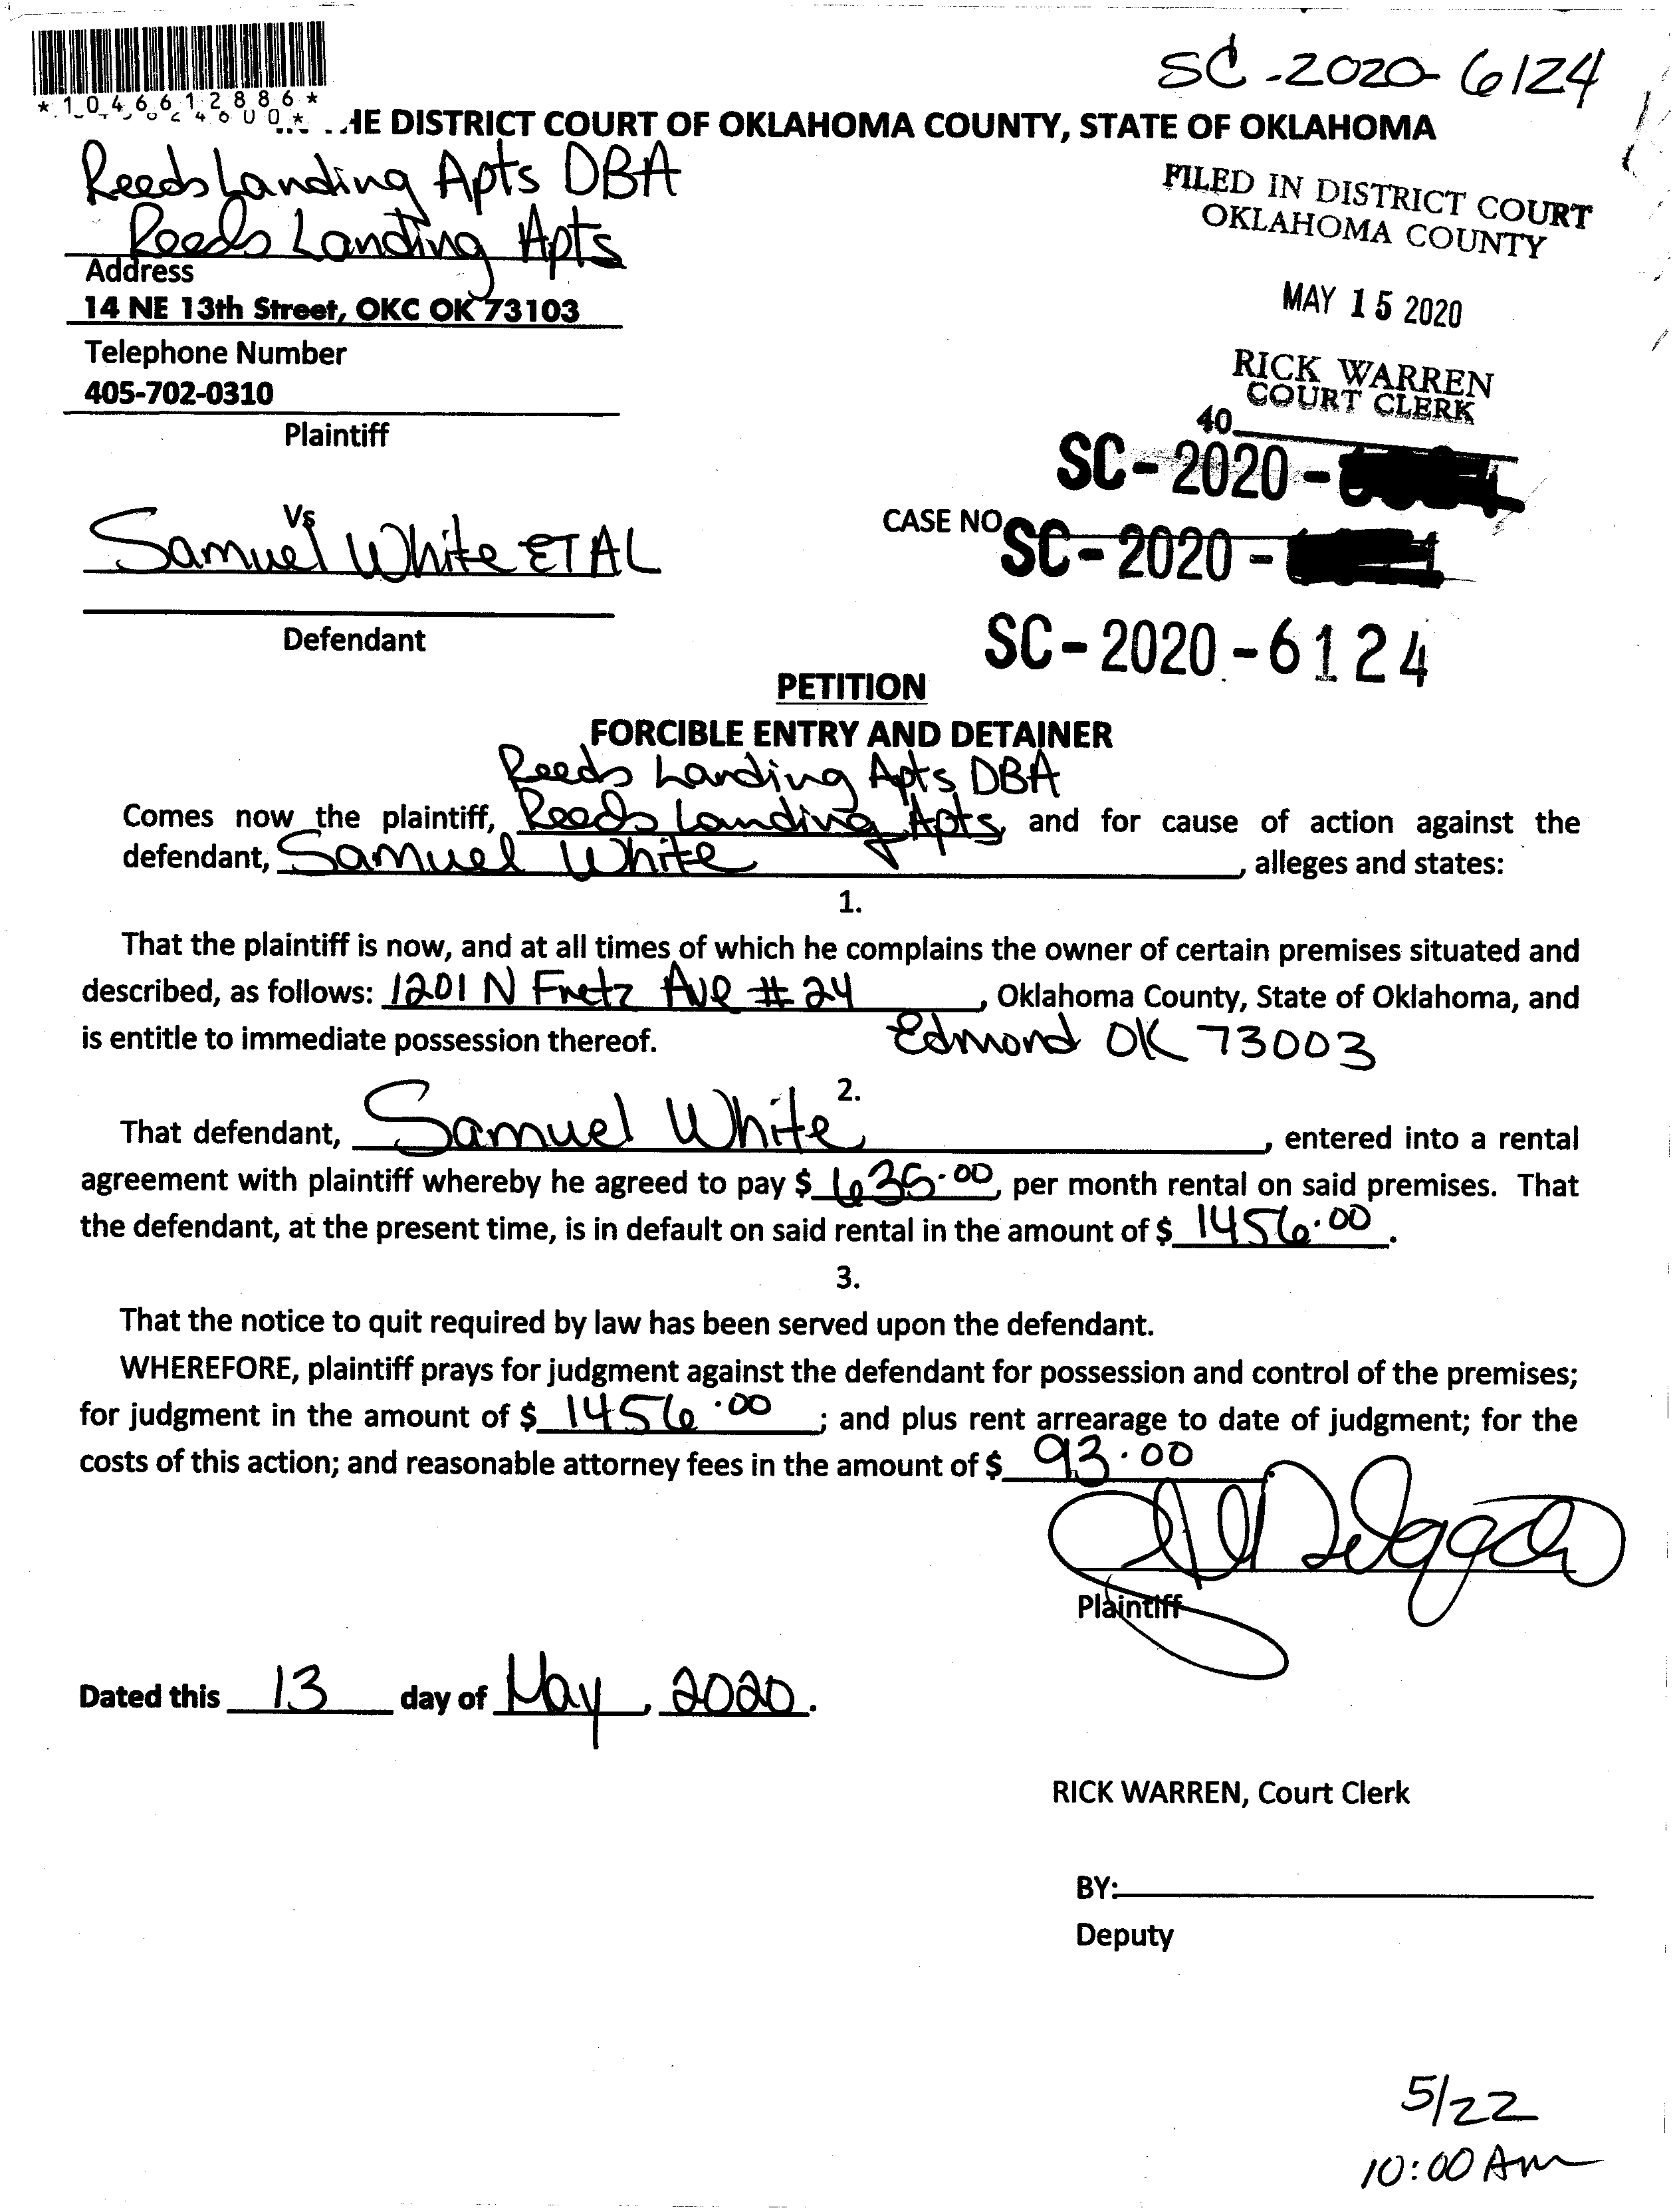 SC-2020-6124
*1046612886*
HE DISTRICT COURT OF OKLAHOMA COUNTY, STATE OF OKLAHOMA
Reeds Landing Apts DBA
Reeds Landing Apts
Address
14 NE 13th Street, OKC OK 73103
Telephone Number
405-702-0310
Plaintiff
FILED IN DISTRICT COURT
OKLAHOMA COUNTY
MAY 15 2020
RICK WARREN
COURT CLERK
40
SC-2020-
Vs
Samuel White ETAL
Defendant
CASE NO
SC-2020-
SC-2020-6124
PETITION
FORCIBLE ENTRY AND DETAINER
Reeds Landing Apts DBA
Comes now the plaintiff, Reeds Landing Apts, and for cause of action against the
defendant, Samuel White, alleges and states:
1.
That the plaintiff is now, and at all times of which he complains the owner of certain premises situated and
described, as follows: 1201 N Fretz Ave # 24, Oklahoma County, State of Oklahoma, and
is entitle to immediate possession thereof. Edmond OK 73003
2.
That defendant, Samuel White, entered into a rental
agreement with plaintiff whereby he agreed to pay $ 635.00, per month rental on said premises. That
the defendant, at the present time, is in default on said rental in the amount of $ 1456.00.
3.
That the notice to quit required by law has been served upon the defendant.
WHEREFORE, plaintiff prays for judgment against the defendant for possession and control of the premises;
for judgment in the amount of $ 1456.00; and plus rent arrearage to date of judgment; for the
costs of this action; and reasonable attorney fees in the amount of $ 93.00
Plaintiff
Dated this 13 day of May, 2020.
RICK WARREN, Court Clerk
BY:
Deputy
5/22
10:00 Am